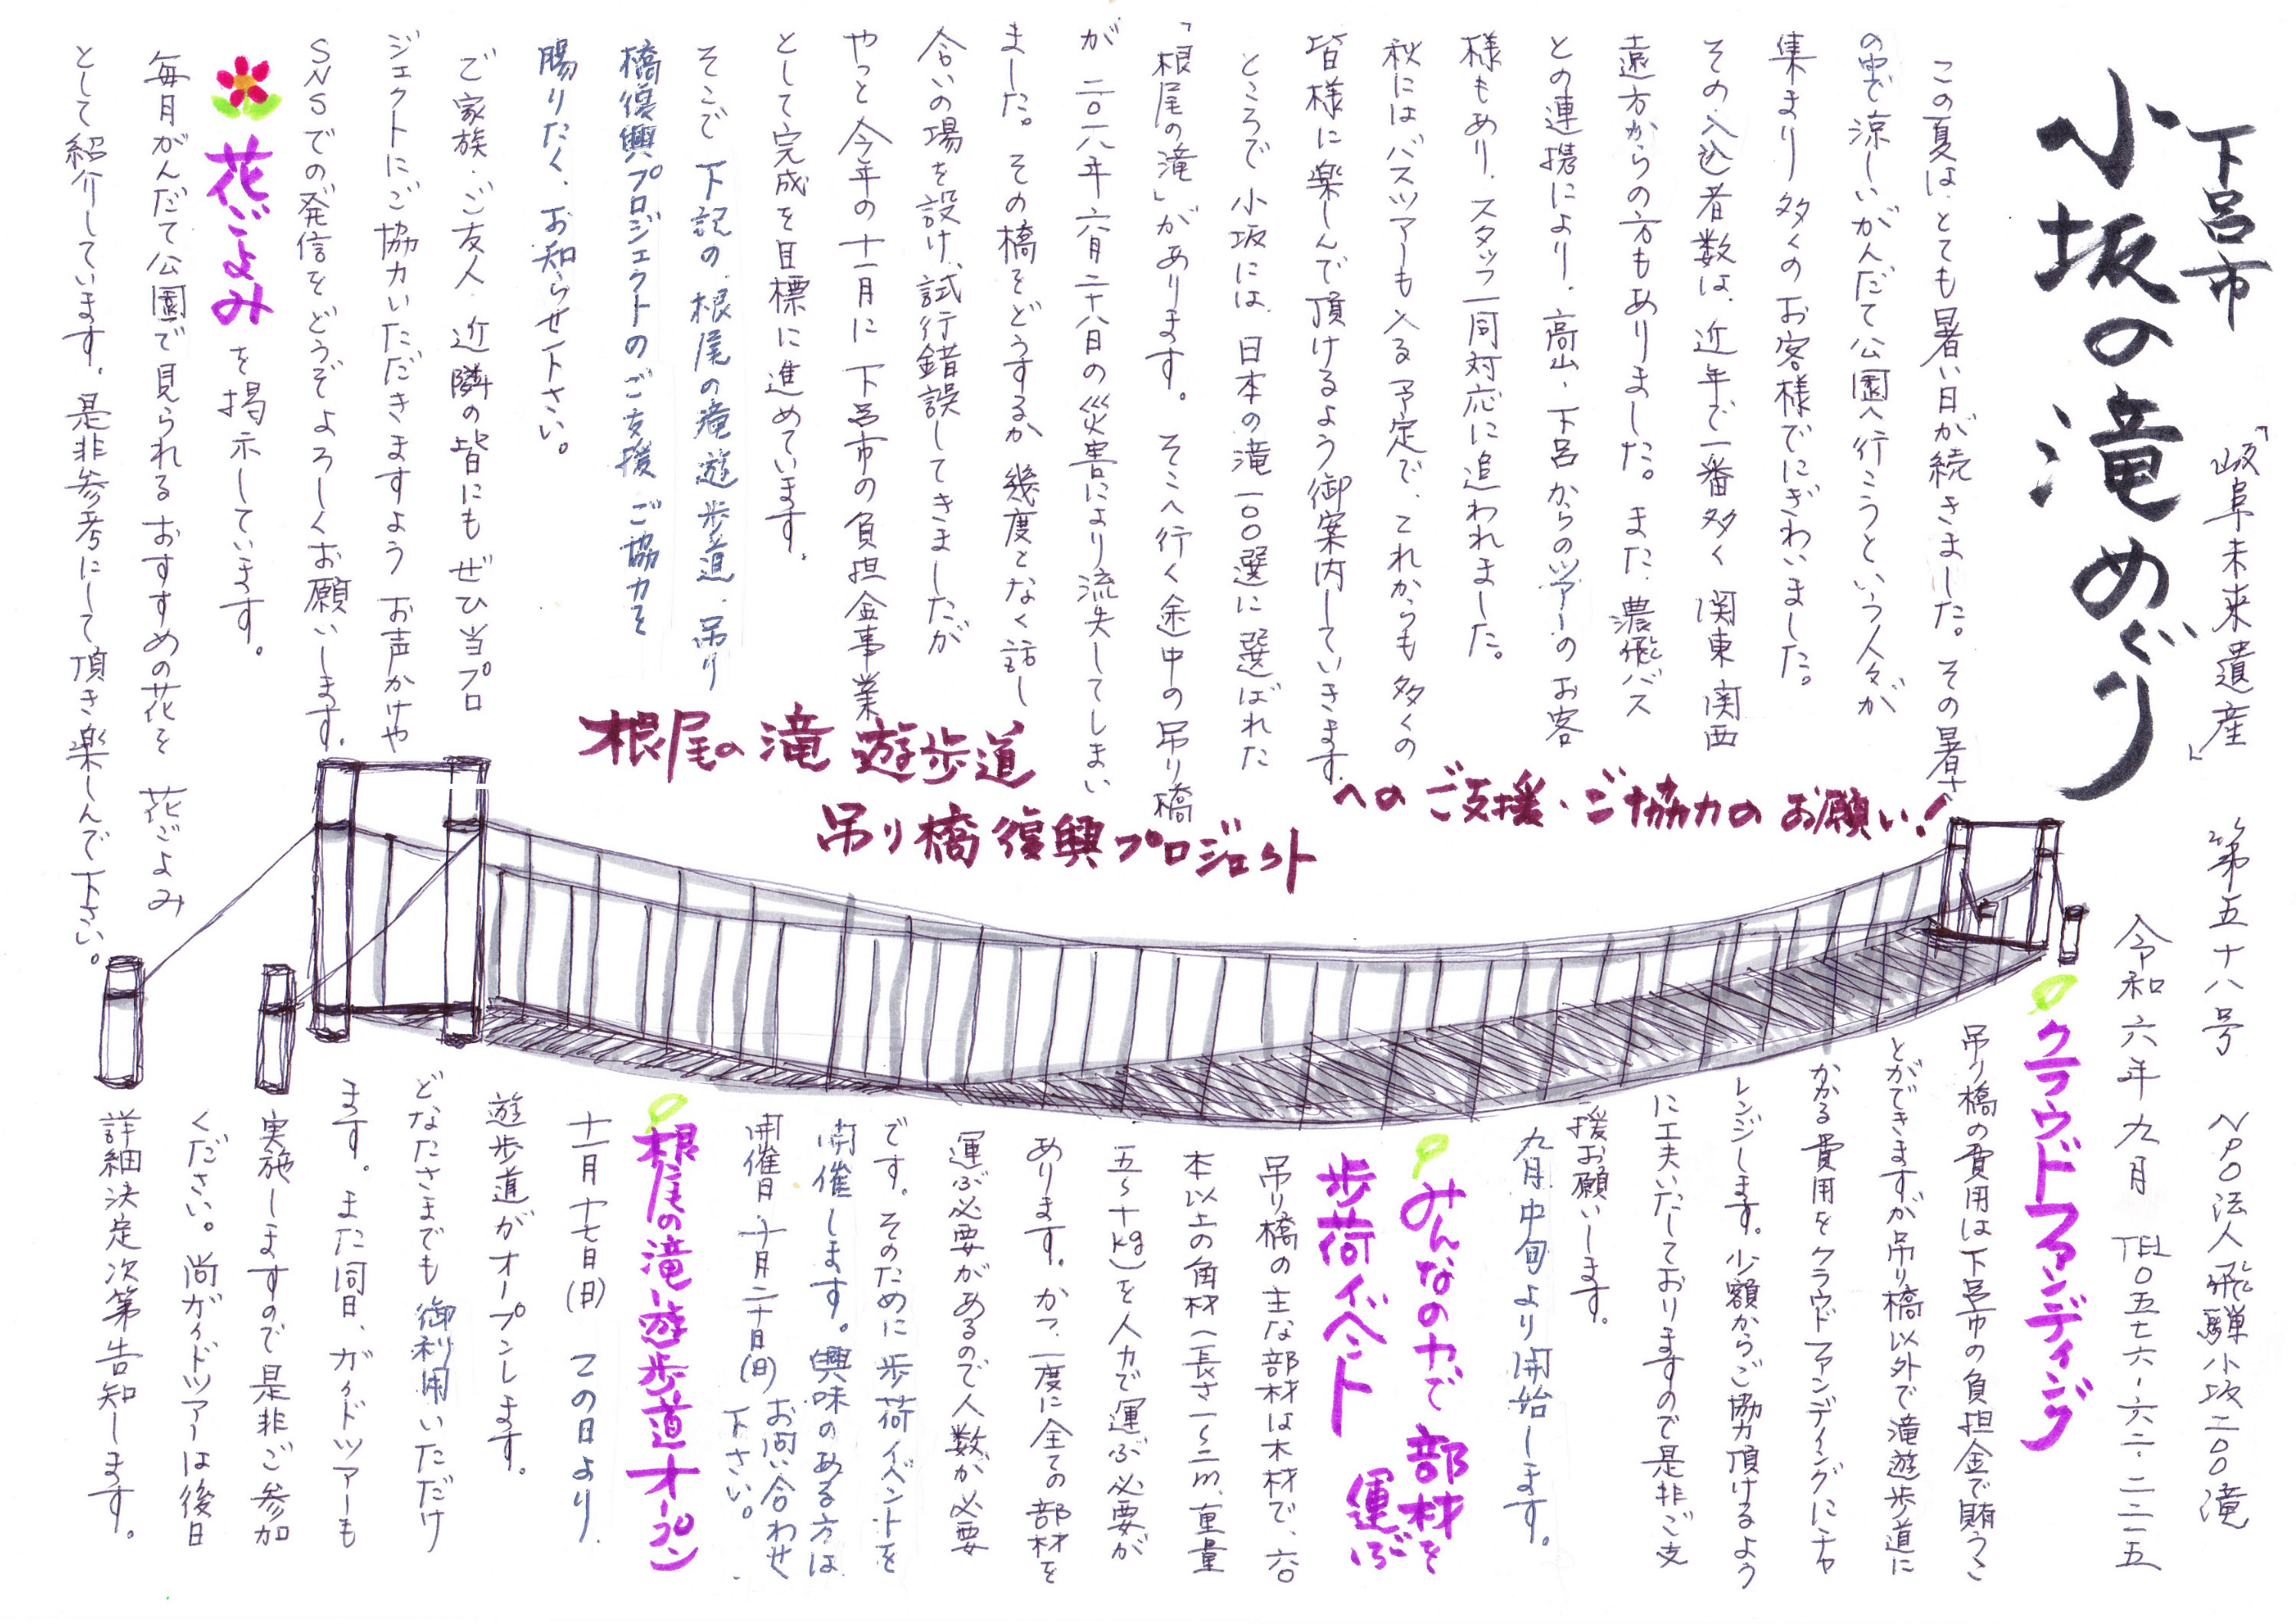 下呂市
小坂の滝めぐり
「岐阜未来遺産」
第五十八号
NPO法人飛騨小坂二〇〇滝
令和六年九月
TEL〇五七六-六二-二二一五
この夏は、とても暑い日が続きました。その暑さ
の中で涼しいがんだて公園へ行こうという人々が
集まり多くのお客様でにぎわいました。
その入込者数は、近年で一番多く関東関西
遠方からの方もありました。また、濃飛バス
との連携により、高山・下呂からのツアーのお客
様もあり、スタッフ一同対応に追われました。
秋にはバスツアーも入る予定で、これからも多くの
皆様に楽しんで頂けるよう御案内していきます。
ところで小坂には、日本の滝一〇〇選に選ばれた
「根尾の滝」があります。そこへ行く途中の吊り橋
が二〇一八年六月二十八日の災害により流失してしまい
ました。その橋をどうするか幾度となく話し
合いの場を設け、試行錯誤してきましたが
やっと今年の十一月に下呂市の負担金事業
として完成を目標に進めています。
そこで下記の、根尾の滝遊歩道、吊り
橋復興プロジェクトのご支援ご協力を
賜りたく、お知らせ下さい。
ご家族・ご友人、近隣の皆にもぜひ当プロ
ジェクトにご協力いただきますようお声かけや
SNSでの発信をどうぞよろしくお願いします。
花ごよみを掲示しています。
毎月がんだて公園で見られるおすすめの花を花ごよみ
として紹介しています。是非参考にして頂き楽しんで下さい。
根尾の滝遊歩道
吊り橋復興プロジェクト
へのご支援・ご協力のお願い!
クラウドファンディング
吊り橋の費用は下呂市の負担金で賄うこ
とができますが吊り橋以外で滝遊歩道に
かかる費用をクラウドファンディングにチャ
レンジします。少額からご協力頂けるよう
に工夫いたしておりますので是非ご支
援お願いします。
九月中旬より開始します。
みんなの力で部材を
歩荷イベント 運ぶ
吊り橋の主な部材は木材で、六〇
本以上の角材(長さ一〜二m、重量
五〜十kg)を人力で運ぶ必要が
あります。かつ、一度に全ての部材を
運ぶ必要があるので人数が必要
です。そのために歩荷イベントを
開催します。興味のある方は
開催日・十月二十日(日) お問い合わせ
下さい。
根尾の滝遊歩道オープン
十一月十七日(日) この日より、
遊歩道がオープンします。
どなたさまでも御利用いただけ
ます。また同日、ガイドツアーも
実施しますので是非ご参加
ください。尚ガイドツアーは後日
詳細決定次第告知します。